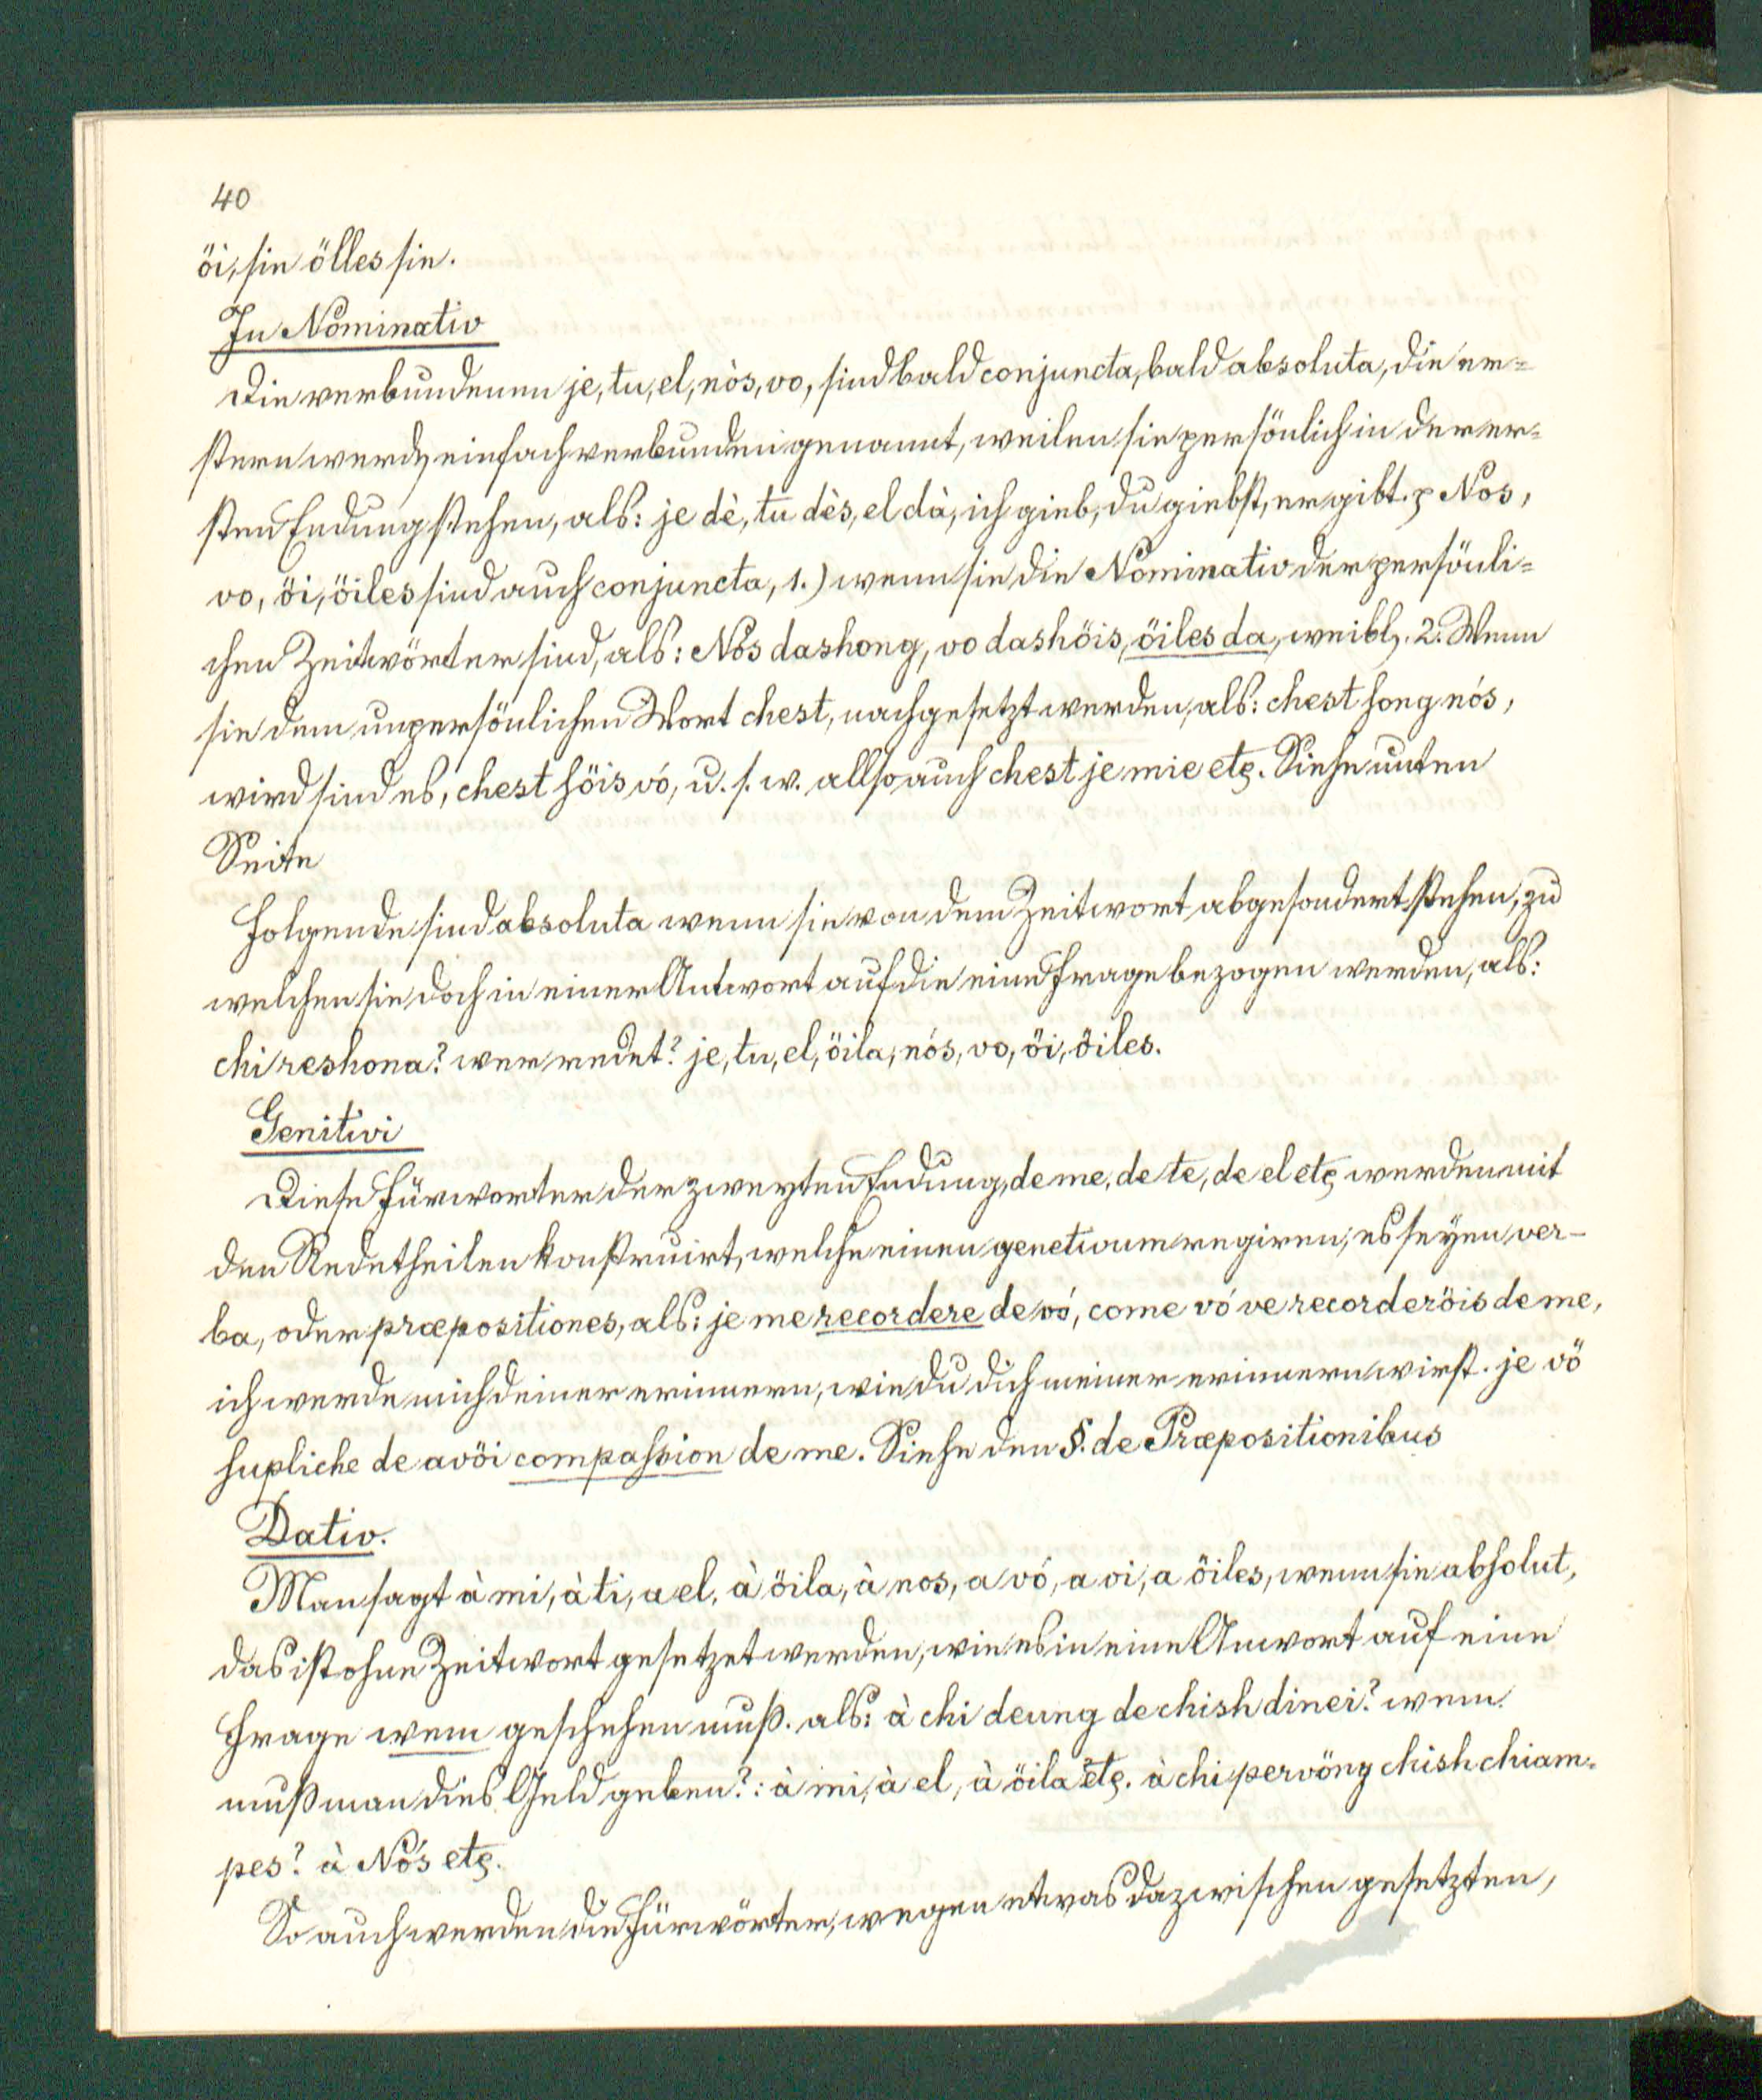 40
öi, sie ölles sie.
In Nominativ
Die verbundenen je, tu, el, nòs, vo, sind bald conjuncta, bald absoluta, die er=
stern werdₙ einfach verbunden genannt, weilen sie persönlich in der er=
sten Endung stehen, als: je dè, tu dès, el dà, ich gieb, du giebst, er gibt. p Nos,
vo, öi, öiles sind auch conjuncta, 1.) wenn sie die Nominativ der persönli=
chen Zeitwörter sind, als: Nos dashong, vo dashöis, öiles da, weibl. 2. Wenn
sie dem unpersönlichen Wort chest, nachgesetzt werden, als: chest song nós,
wird sind es, chest söis vó, u. s. w. allso auch chest je mie etc. Siehe unten
Seite
Folgende sind absoluta wenn sie von dem Zeitwort abgesondert stehen, zu
welchen sie doch in einer Antwort auf die eine Frage bezogen werden, als:
chi reshona? wer redet? je, tu, el, öila, nós, vo, öi, öiles.
Genitivi
Diese Fürworter der zweyten Endung, de me, de te, de el etc werden mit
den Redetheilen konstruirt, welche einen genetivum regiren, es seyen ver-
ba, oder præpositiones, als: je me recordere de vó, come vó ve recorderöis de me,
ich werde mich deiner erinnern, wie du dich meiner erinnern wirst. je vö
supliche de avöi compassion de me. Siehe den §. de Præpositionibus
Dativ.
Man sagt à mi, à ti, a el, à öila, à nos, a vó, a oi, a öiles, wenn sie absolut,
das ist ohne Zeitwort gesetzet werden, wie es in eine Anwort auf eine
Frage wem geschehen muß. als: à chi deung de chish dinei? wem
muß man dies Geld geben?: à mi, à el, à öila etc. à chi pervöng chish chiam=
pes? à Nós etc.
So auch werden die Fürwörter, wegen etwas dazwischen gesetzten,